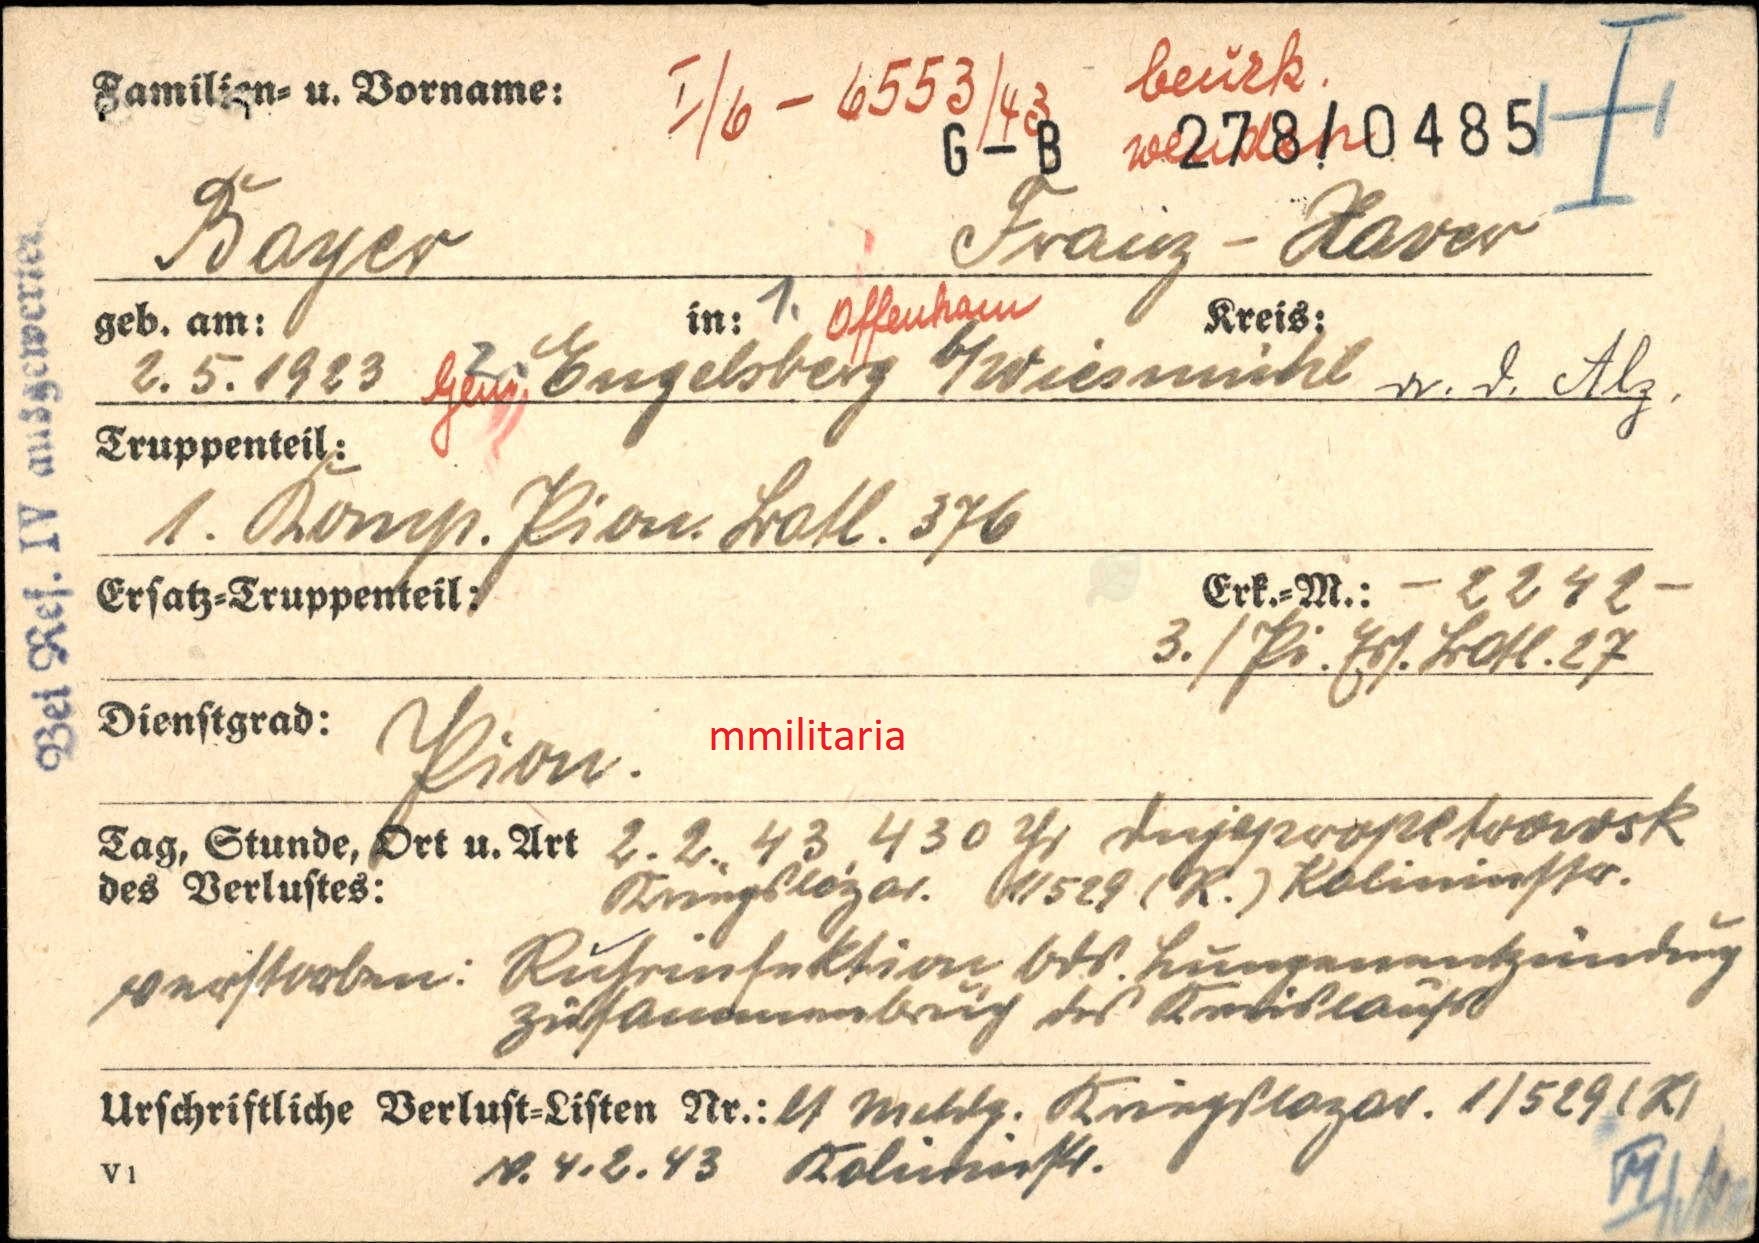 Familien- u. Vorname:
I/6 - 6553/43 beurk.
G-B 278/0485 I
Bayer Franz-Xaver
geb. am: in: 1. Offenham Kreis:
2.5.1923 2. Engelsberg b/Wiesmühl a. d. Alz.
Truppenteil:
1. Komp. Pion. Batl. 376
Ersatz-Truppenteil: Erk.-M.: -2242-
3./Pi. Ers. Batl. 27
Dienstgrad: Pion.
mmilitaria
Tag, Stunde, Ort u. Art 2.2.43 430 Dnjepropetrowsk
des Verlustes: Kriegslazar. 1/529 (K.) Kalininstr.
verstorben: Ruhrinfektion, bds. Lungenentzündung
Zusammenbruch des Kreislaufs
Urschriftliche Verlust-Listen Nr.: lt Meldg. Kriegslazar. 1/529 (K)
V 1 v. 4.2.43 Kalininstr.
Bei Ref. IV ausgewertet